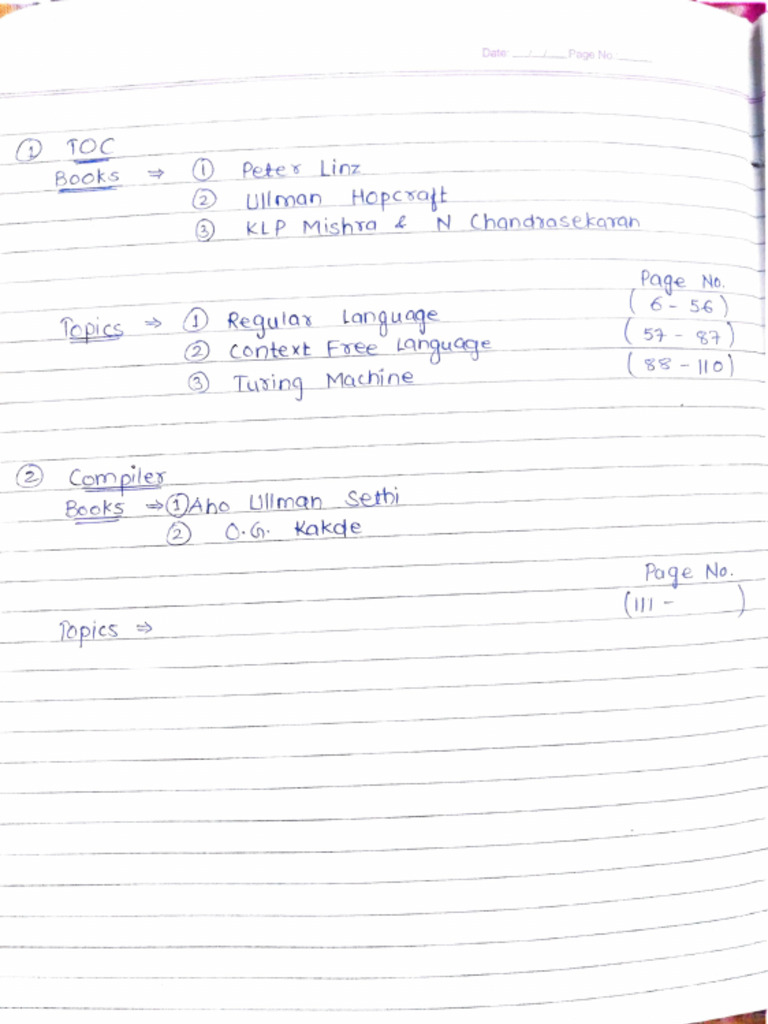 Date: __/__/____ Page No.:_____
① TOC
Books ⇒ ① Peter Linz
② Ullman Hopcraft
③ KLP Mishra & N Chandrasekaran
Page No.
Topics ⇒ ① Regular Language (6 - 56)
② Context Free Language (57 - 87)
③ Turing Machine (88 - 110)
② Compiler
Books ⇒ ① Aho Ullman Sethi
② O.G. Kakde
Page No.
(111 - )
Topics ⇒